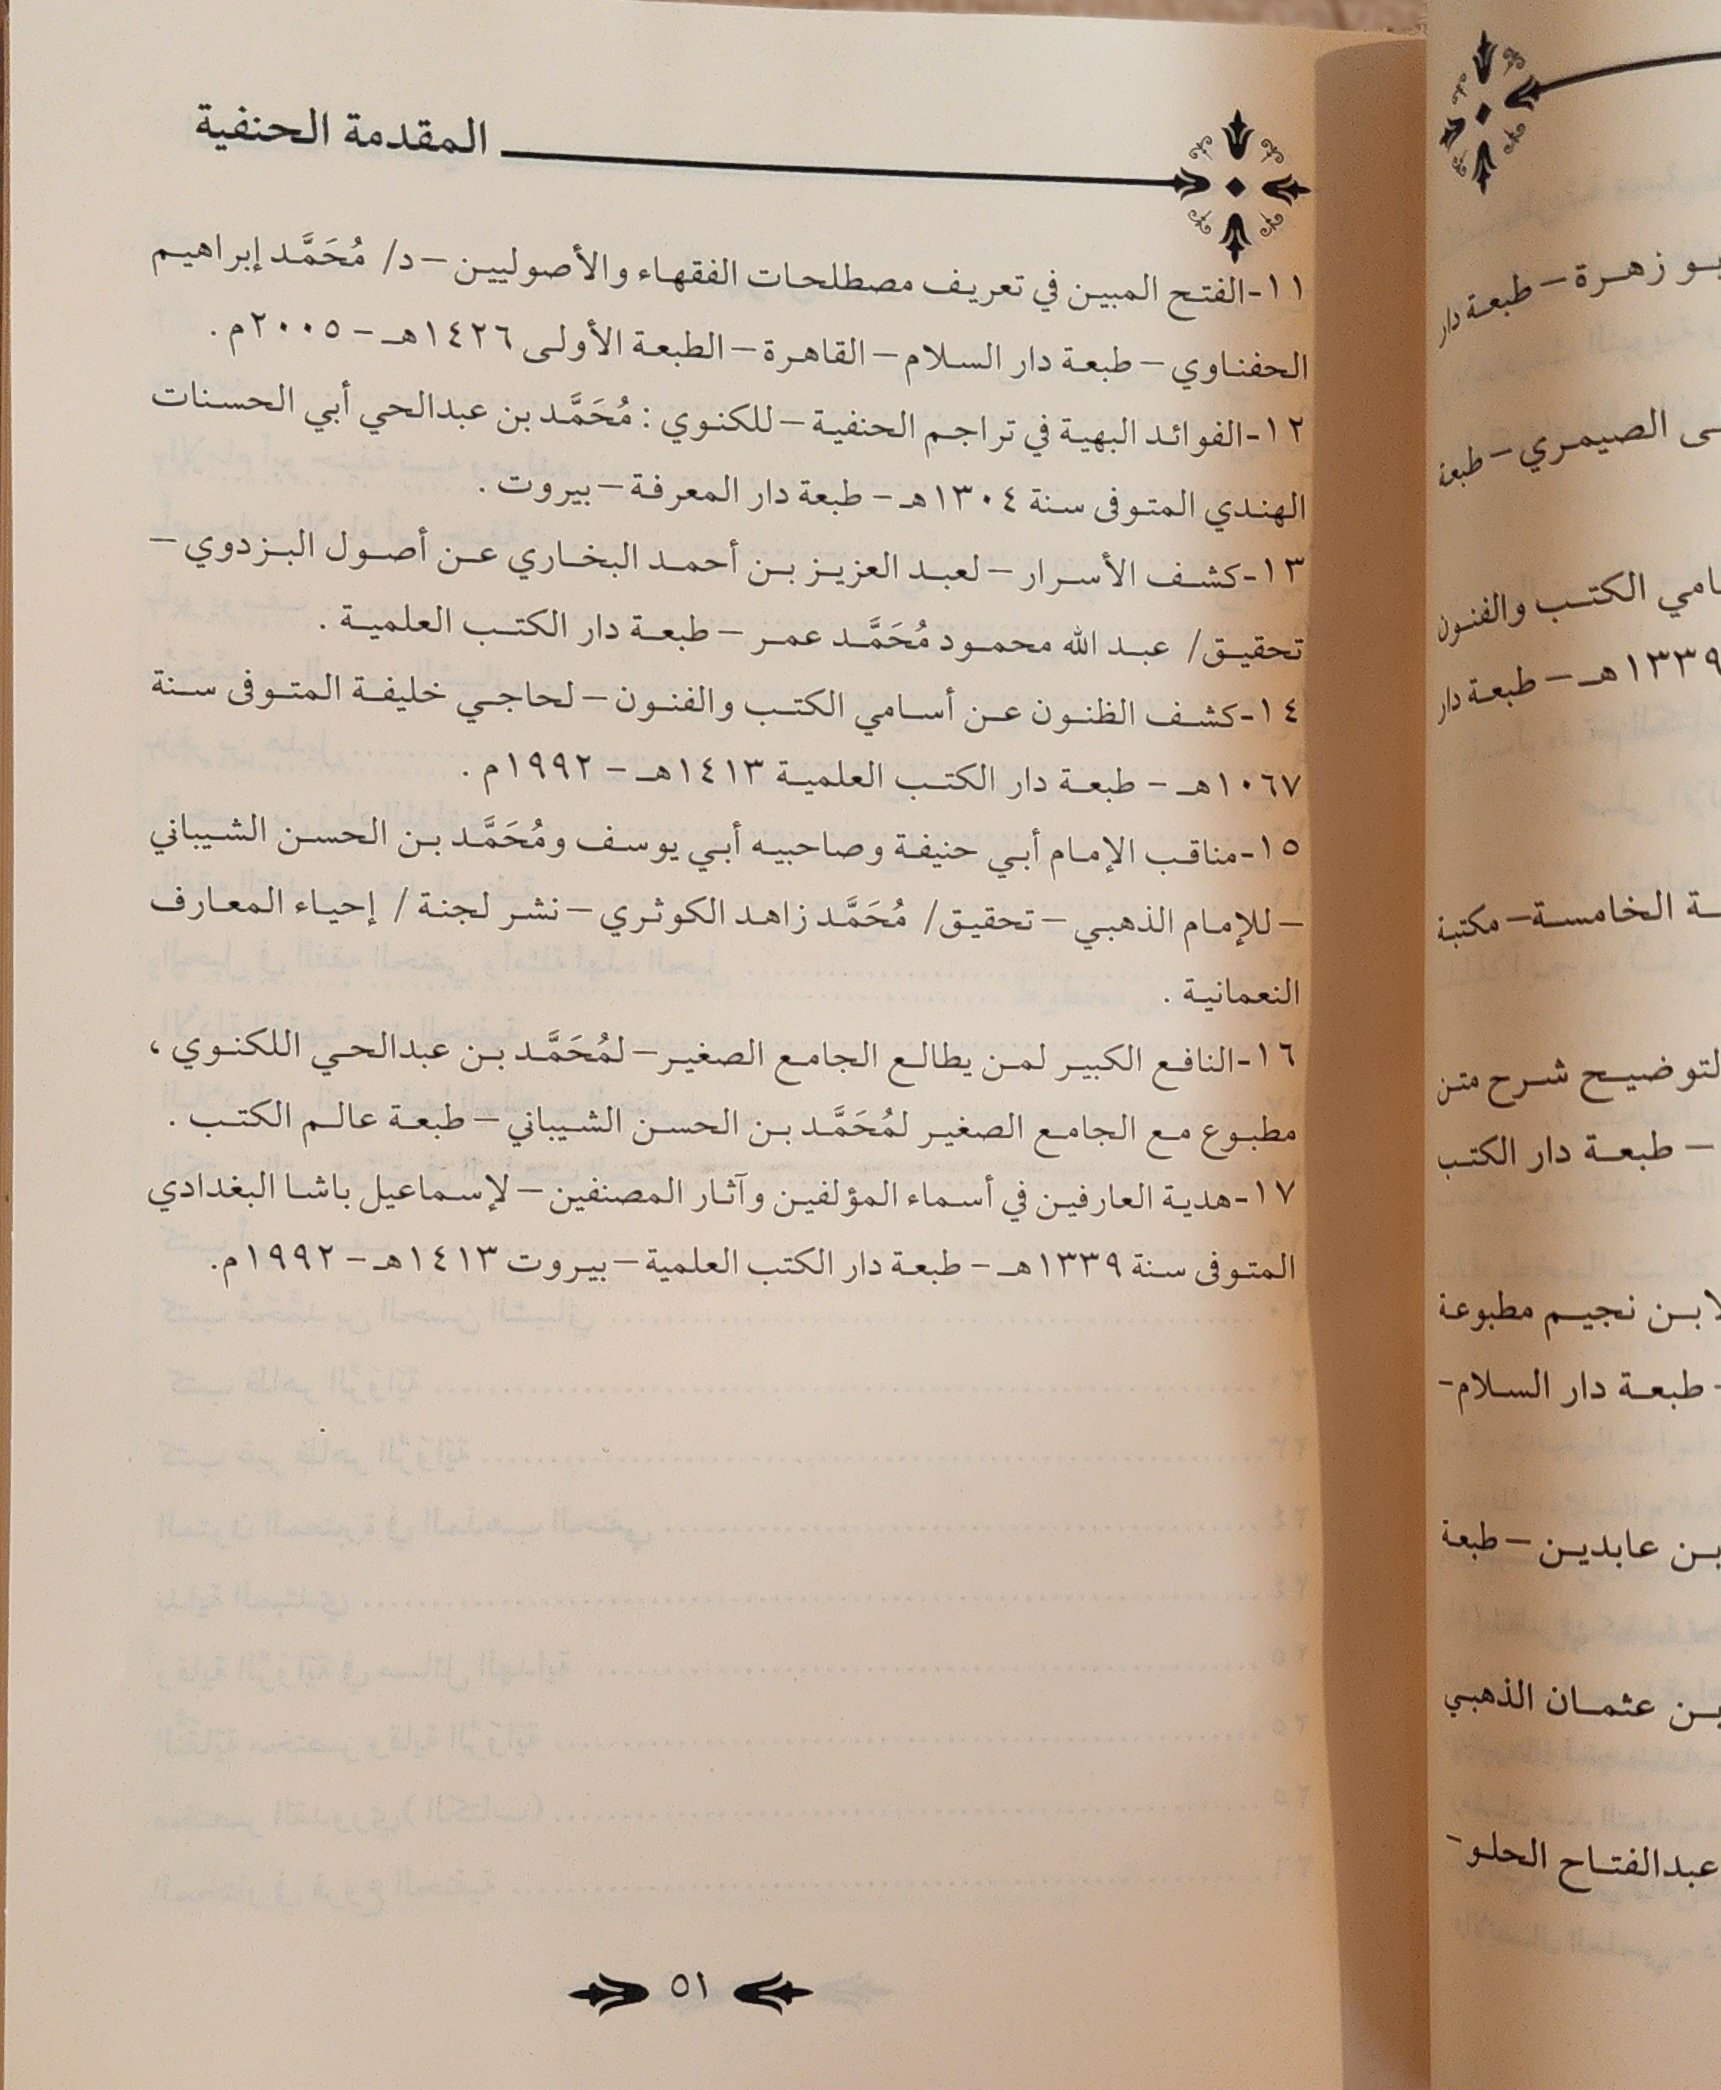 المقدمة الحنفية
١١-الفتح المبين في تعريف مصطلحات الفقهاء والأصوليين – د/ مُحَمَّد إبراهيم
الحفناوي – طبعة دار السلام – القاهرة – الطبعة الأولى ١٤٢٦هـ – ٢٠٠٥م .
١٢-الفوائد البهية في تراجم الحنفية – للكنوي : مُحَمَّد بن عبدالحي أبي الحسنات
الهندي المتوفى سنة ١٣٠٤هـ – طبعة دار المعرفة – بيروت .
١٣-كشف الأسرار – لعبد العزيز بن أحمد البخاري عن أصول البزدوي –
تحقيق/ عبد الله محمود مُحَمَّد عمر – طبعة دار الكتب العلمية .
١٤-كشف الظنون عن أسامي الكتب والفنون – لحاجي خليفة المتوفى سنة
١٠٦٧هـ – طبعة دار الكتب العلمية ١٤١٣هـ – ١٩٩٢م .
١٥-مناقب الإمام أبي حنيفة وصاحبيه أبي يوسف ومُحَمَّد بن الحسن الشيباني
– للإمام الذهبي – تحقيق/ مُحَمَّد زاهد الكوثري – نشر لجنة / إحياء المعارف
النعمانية .
١٦-النافع الكبير لمن يطالع الجامع الصغير – لمُحَمَّد بن عبدالحي اللكنوي ،
مطبوع مع الجامع الصغير لمُحَمَّد بن الحسن الشيباني – طبعة عالم الكتب .
١٧-هدية العارفين في أسماء المؤلفين وآثار المصنفين – لإسماعيل باشا البغدادي
المتوفى سنة ١٣٣٩هـ – طبعة دار الكتب العلمية – بيروت ١٤١٣هـ – ١٩٩٢م.
٥١
زهرة – طبعة دار
الصيمري – طبعة
الكتب والفنون
١٣٣٩هـ – طبعة دار
الخامسة – مكتبة
التوضيح شرح متن
– طبعة دار الكتب
لابن نجيم مطبوعة
– طبعة دار السلام –
بن عابدين – طبعة
بن عثمان الذهبي
عبدالفتاح الحلو –